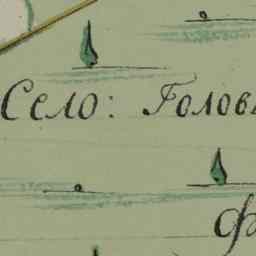 Село: Голов